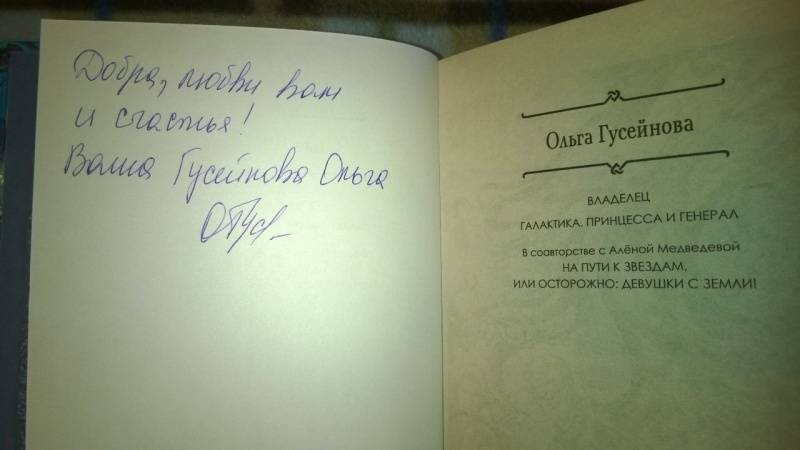 Добра, любви вам
и счастья!
Ваша Гусейнова Ольга
Ольга Гусейнова
ВЛАДЕЛЕЦ
ГАЛАКТИКА. ПРИНЦЕССА И ГЕНЕРАЛ
В соавторстве с Алёной Медведевой
НА ПУТИ К ЗВЕЗДАМ,
ИЛИ ОСТОРОЖНО: ДЕВУШКИ С ЗЕМЛИ!